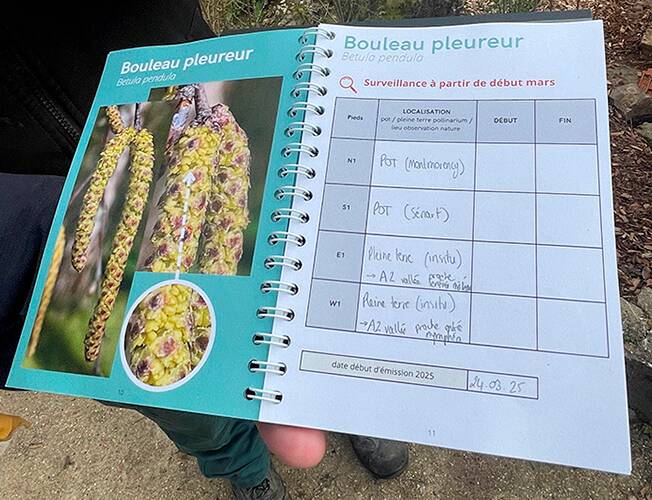 Bouleau pleureur
Betula pendula
10
Bouleau pleureur
Betula pendula
Surveillance à partir de début mars
Pieds
LOCALISATION
pot / pleine terre pollinarium /
lieu observation nature
DÉBUT
FIN
N1
POT (Montmorency)
S1
POT (Sénart)
E1
Pleine terre (insitu)
→ A2 vallée proche
W1
Pleine terre (insitu)
→ A2 vallée proche
date début d'émission 2025
24.03.25
11